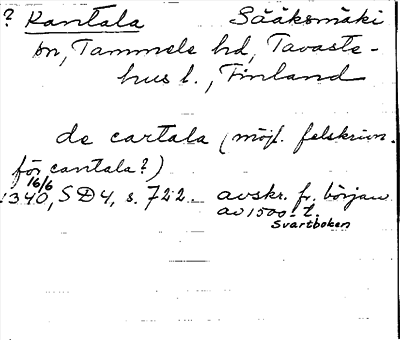 ? Kantala Sääksmäki
sn, Tammela hd, Tavaste-
hus l., Finland
de cartala (möjl. felskrivn.
för cantala?)
16/6
1340, SD4, s. 722. avskr. fr. början
av 1500-t.
Svartboken